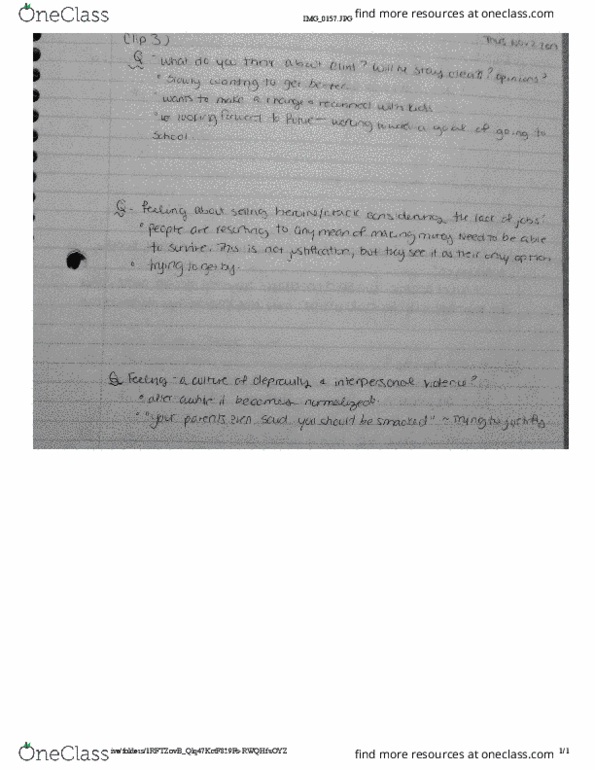 OneClass
IMG_0157.JPG
find more resources at oneclass.com
Clip 3)
Thurs Nov 2
Q - what do you think about Clint? Will he stay clean? Opinions?
• Slowly wanting to get better
• wants to make a change & reconnect with kids
• is looking forward to future - working towards a goal of going to
school
Q - Feeling about selling heroine/crack considering the lack of jobs?
• people are resorting to any mean of making money need to be able
to survive. This is not justification, but they see it as their only option
• trying to get by.
Q Feeling - a culture of depravity & interpersonal violence?
• after awhile it becomes normalized
• "your parents even said you should be smacked" ~ trying to justify
OneClass
find more resources at oneclass.com
1/1